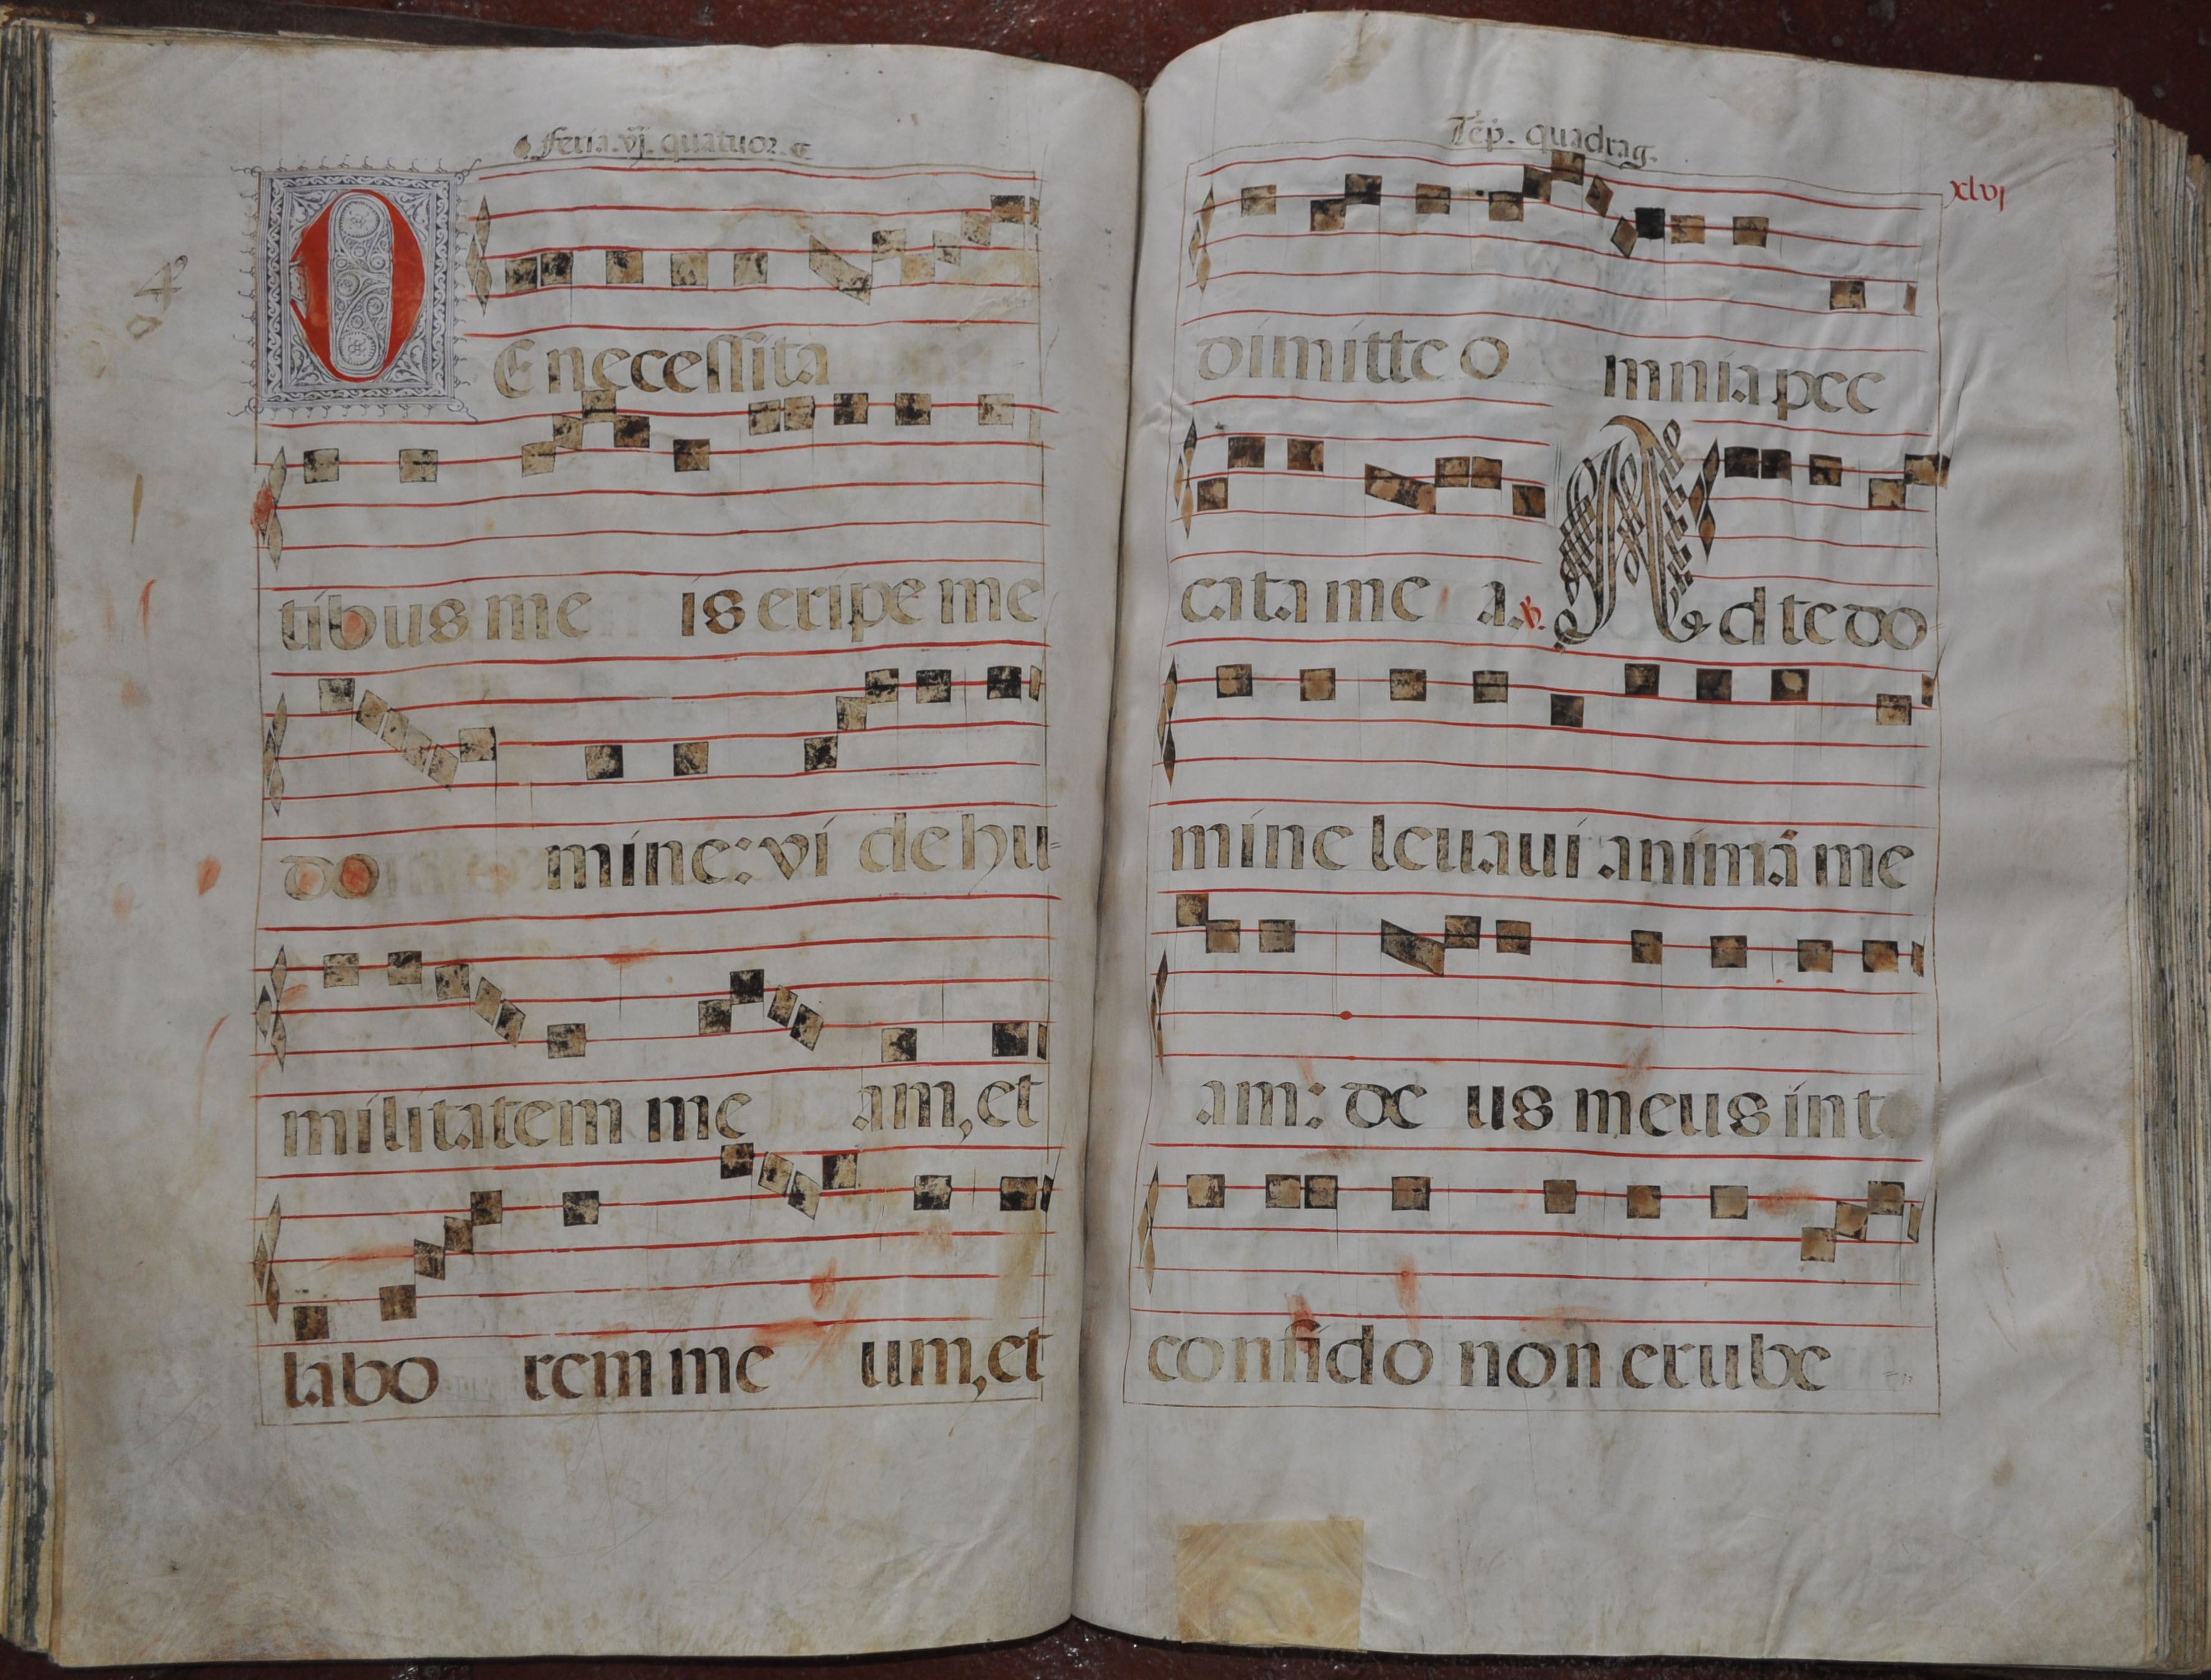 feria. vj. quatuor.
DE necessita
tibus me is eripe me
do mine: vi de hu-
militatem me am, et
labo rem me um, et
Tēp. quadrag.
xlvj
dimitte o mnia pec
cata me a. ℣. Ad te do
mine leuaui animā me
am: de us meus in t
confido non erube